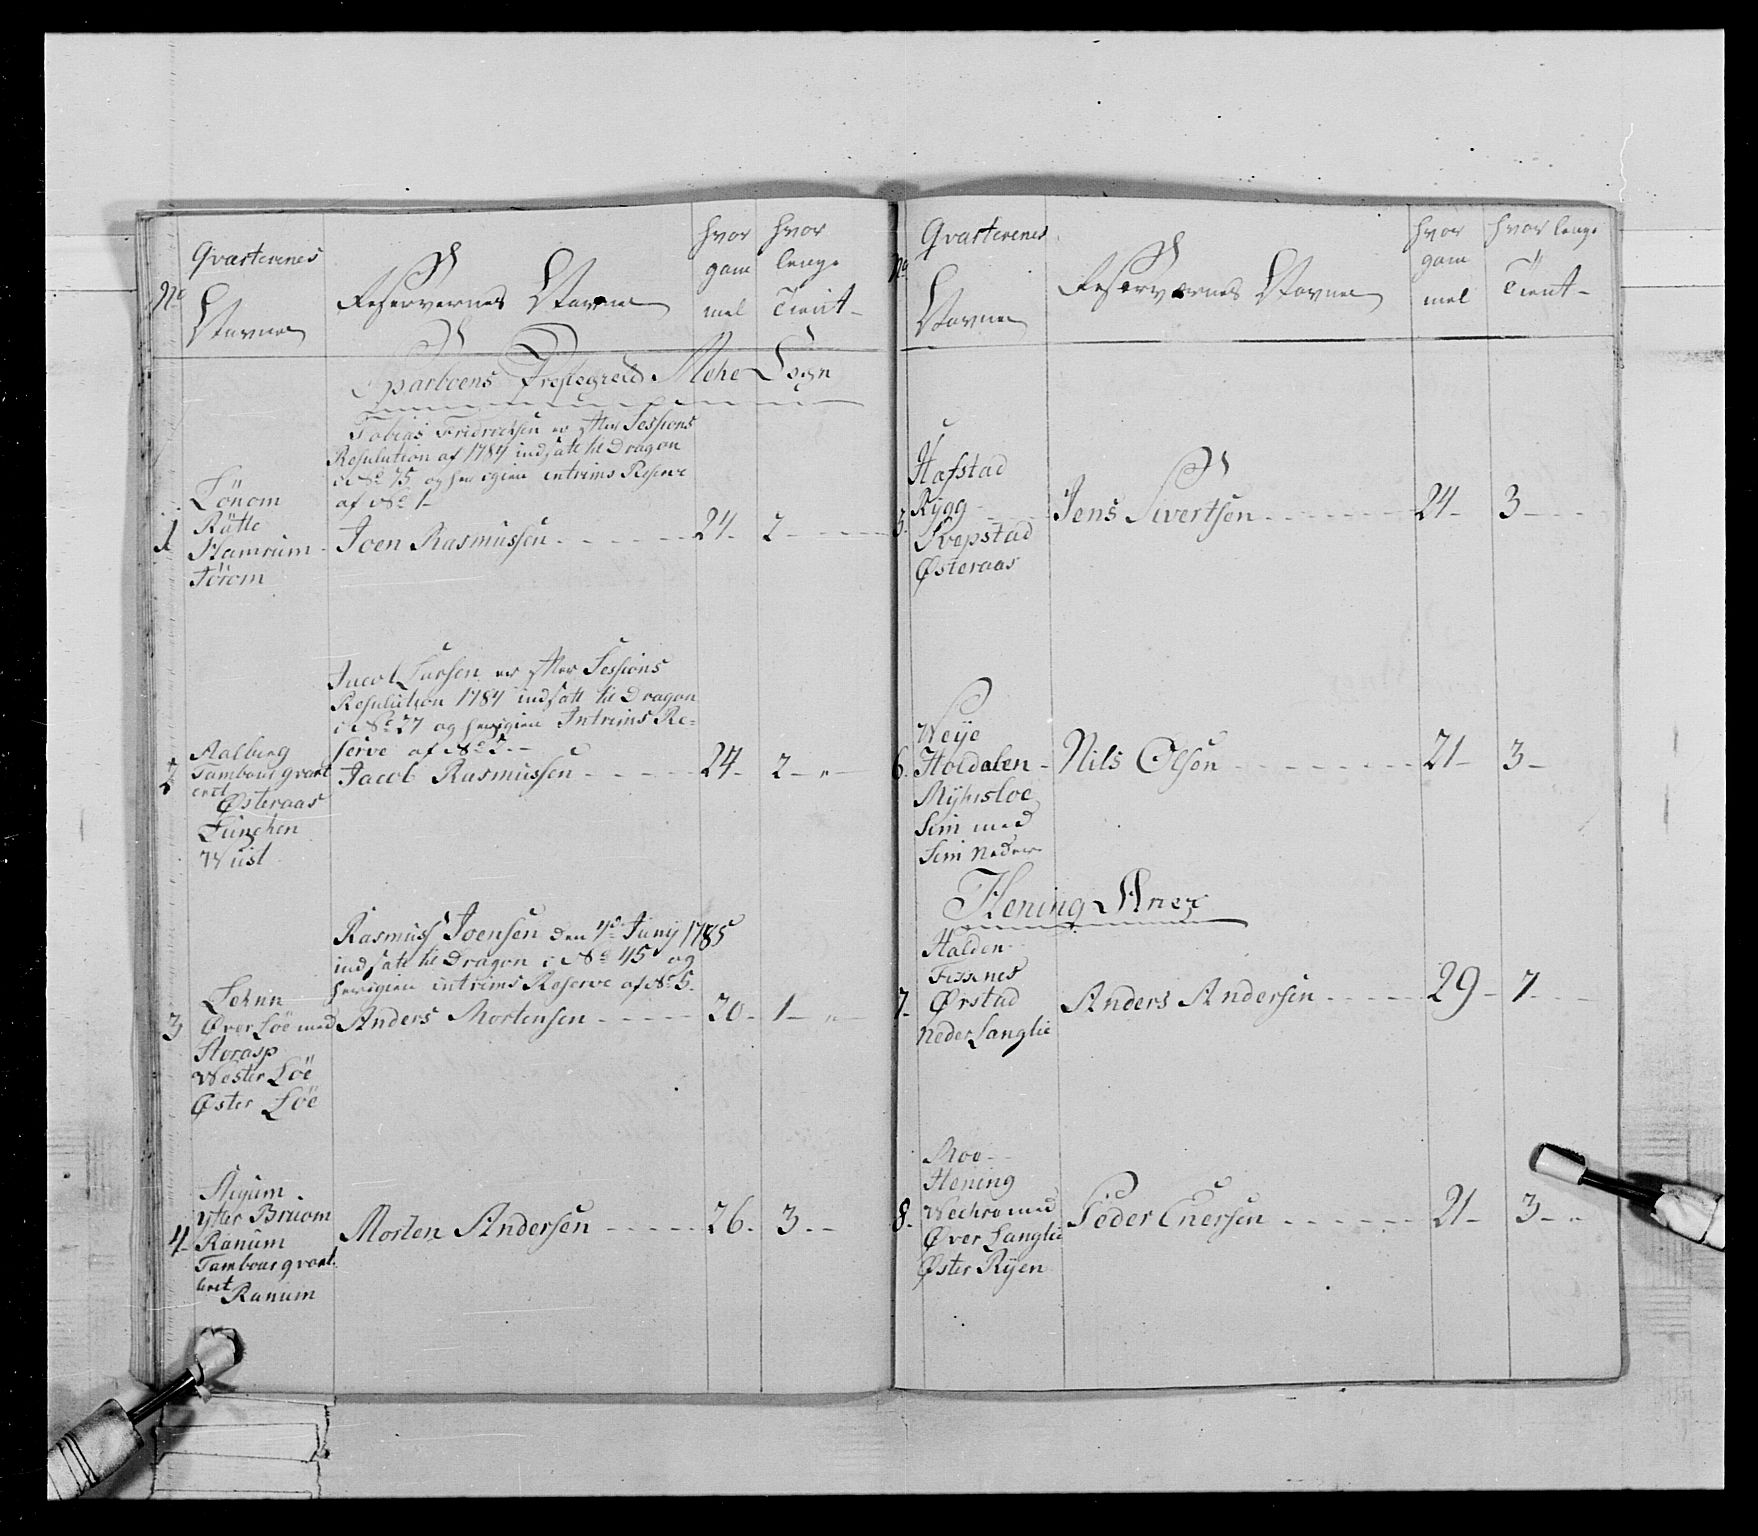 No
Qvarterenes
Navne
Reservernes Navne
hvor
gam
mel
hvor
lenge
Tient
Sparboens Prestegield Mehre Sogn
Tobias Fridrichsen er efter Sessions
Resolution af 1784 indsatt til Dragon
i No 75 og her igien intrims Reserve
af No 1
1
Lönom
Rätte
Hamrum
Törom
Joen Rasmussen 24 2
Jacob Larsen er efter Sessions
Resolution 1784 indsatt til Dragon
i No 27 og her igien Intrims Re=
serve af No 2
2
Aalberg
Tambour qvart
eret
Østeraas
Lunchen
Wüst
Jacob Rasmussen 24 2
Rasmus Joensen den 4de Junij 1785
indsatt til Dragon i No 45 og
her igien intrims Reserve af No 5
3
Lehnn
Øver Löe med
Storasp
Wester Löe
Øster Löe
Anders Mortensen 20 1
4
ytter Bruom
Ranum
Tambour qvart
eret
Ranum
Morten Andersen 26 3
No
Qvarterenes
Navne
Reservernes Navne
hvor
gam
mel
hvor lenge
Tient
5
Hafstad
Rygg
Svepstad
Østeraas
Jens Sivertsen 24 3
6
Weye
Hoedalen
Myhrsloe
Sem med
Sem Neder
Nils Olsen 21 3
Hening Anex
7
Halden
Fissnes
Ørstad
Neder Langlie
Anders Andersen 29 7
8
Moe
Hening
Wechre med
Øver Langlie
Øster Ryen
Peder Enersen 21 3